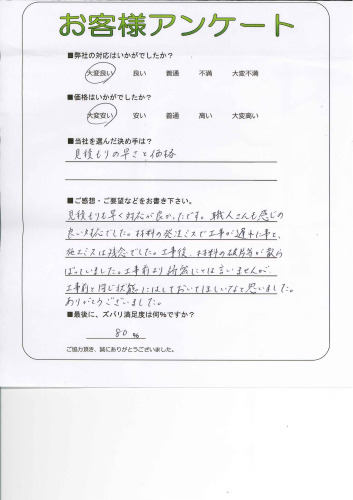 お客様アンケート
■弊社の対応はいかがでしたか？
大変良い 良い 普通 不満 大変不満
■価格はいかがでしたか？
大変安い 安い 普通 高い 大変高い
■当社を選んだ決め手は？
見積もりの早さと価格
■ご感想・ご要望などをお書き下さい。
見積もりも早く対応が良かったです。職人さんも感じの
良い対応でした。材料の発注ミスで工事が遅れた事と、
施工ミスは残念でした。工事後、材料の破片等が散ら
ばっていました。工事前より綺麗にとは言いませんが
工事前と同じ状態にはしておいてほしいなと思いました。
ありがとうございました。
■最後に、ズバリ満足度は何％ですか？
80 %
ご協力頂き、誠にありがとうございました。